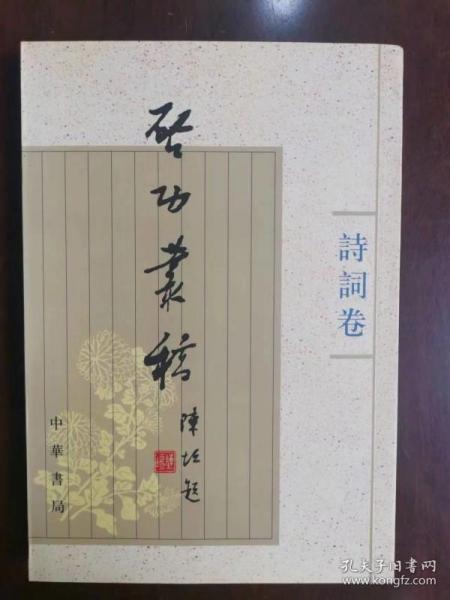 启功叢稿
陳垣题
詩詞卷
中華書局
孔夫子旧书网
www.kongfz.com